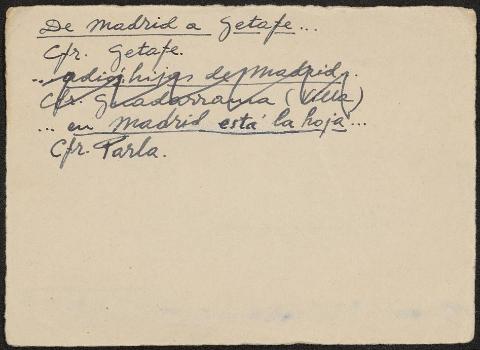 De Madrid a Getafe...
Cfr. Getafe.
... adiós hijas de Madrid.
Cfr. Guadarrama (Villa)
... en Madrid está la hoja...
Cfr. Parla.